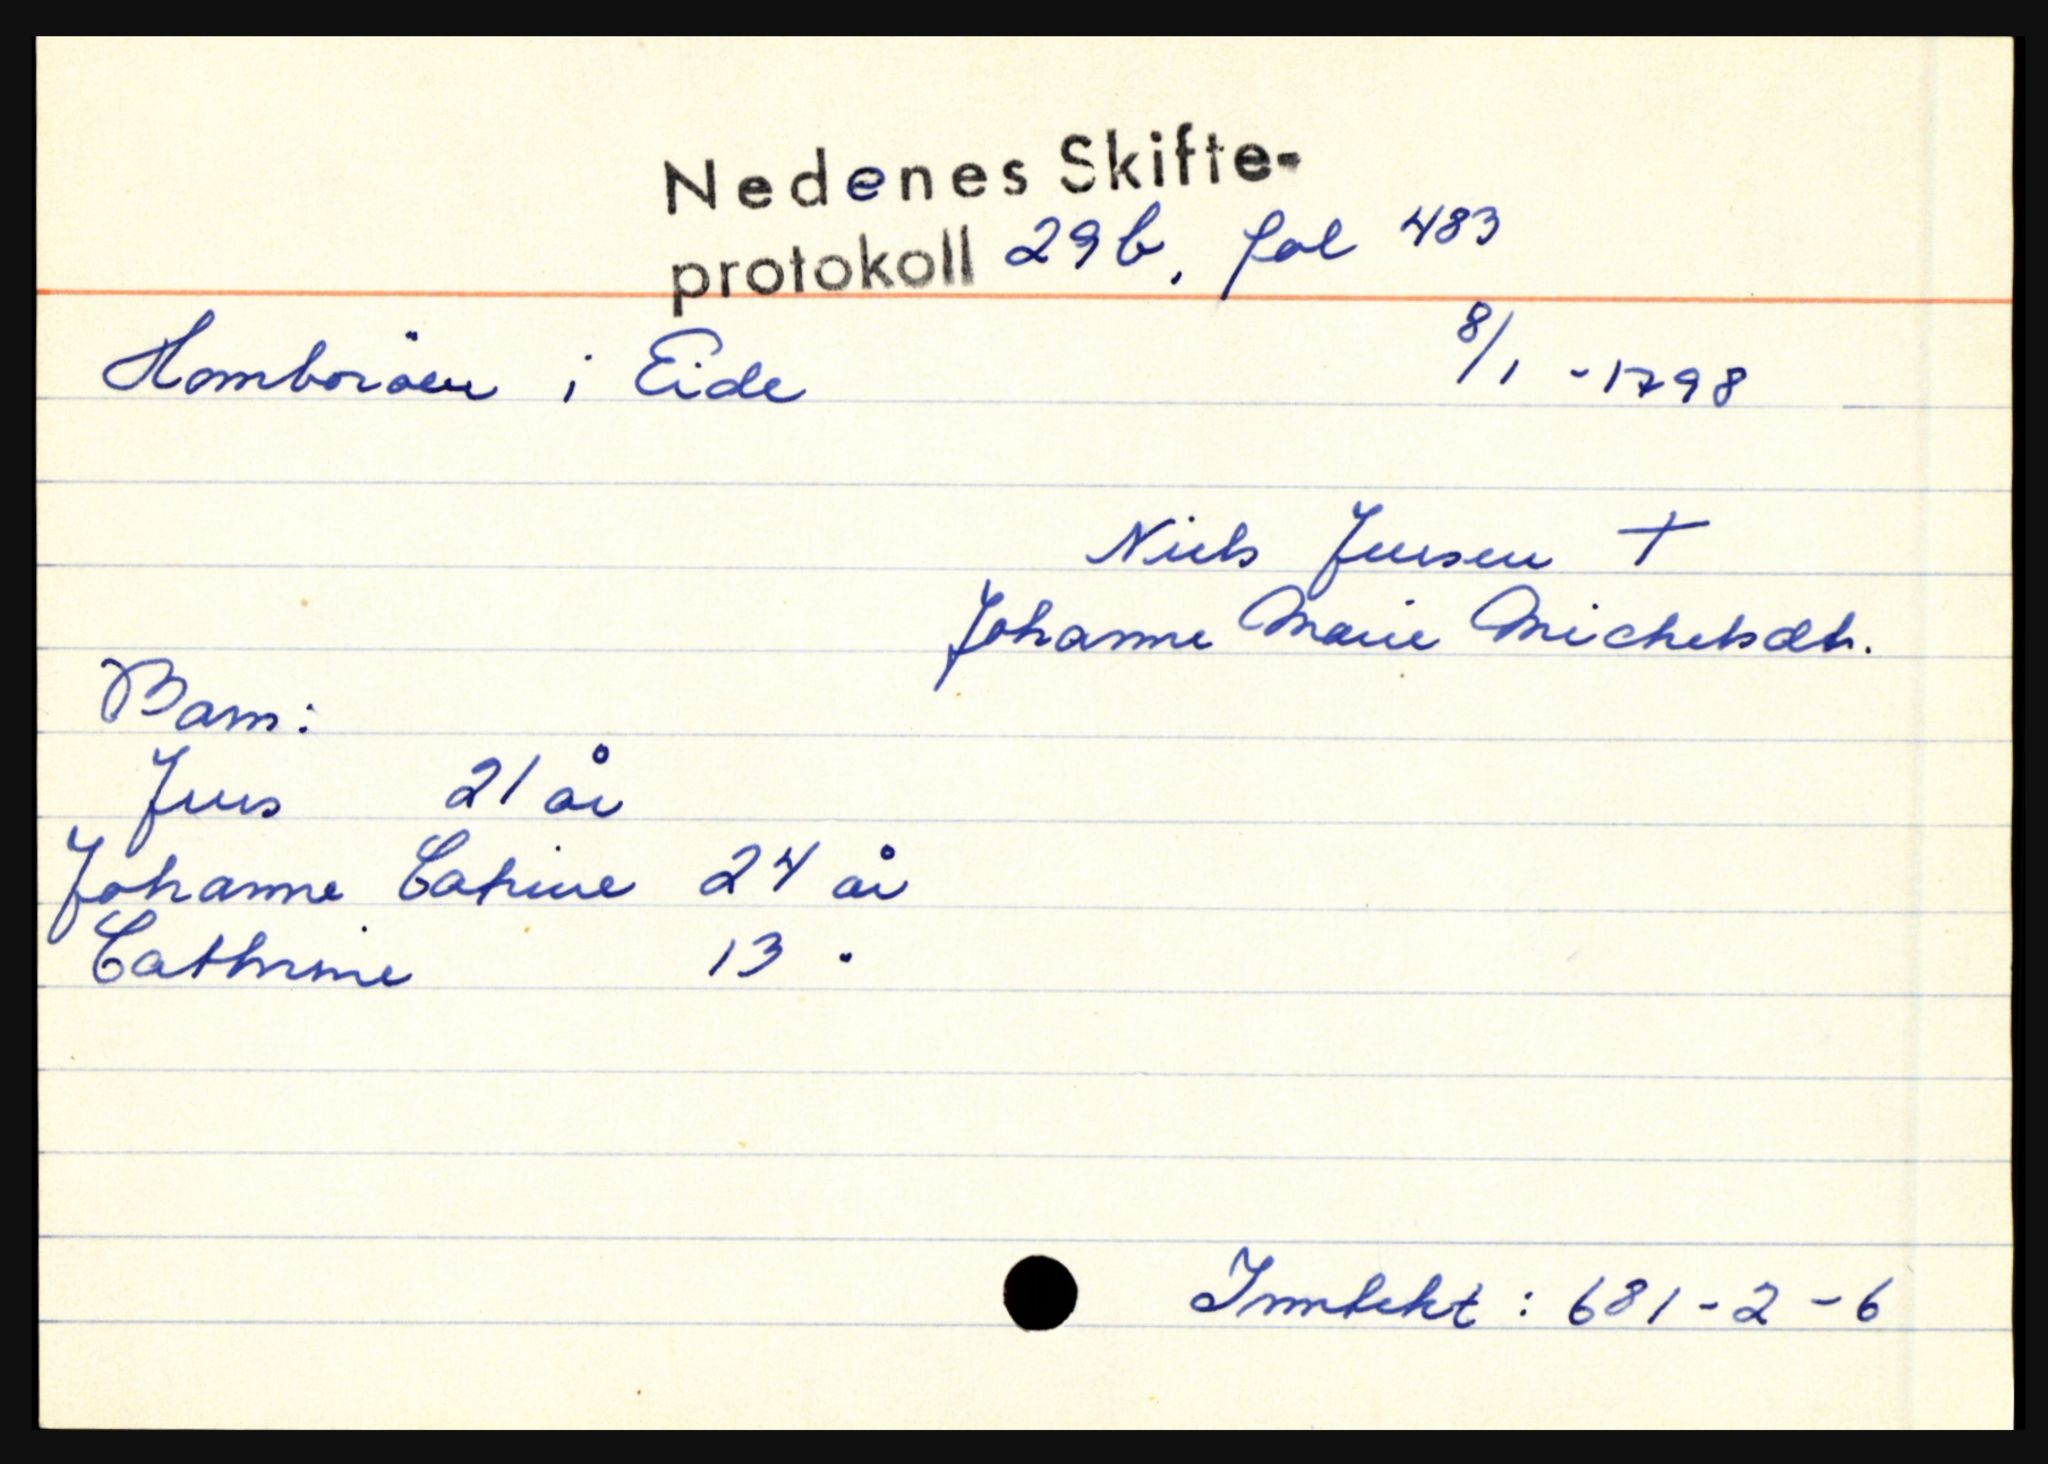 Nedenes Skifte-
protokoll 29b, fol 483
Homboröen i Eide 8/1 -1798
Niels Jensen †
Johanne Marie Michelsdt.
Barn:
Jens 21 år
Johanne Catrine 24 år
Cathrine 13 "
Inntekt : 681-2-6